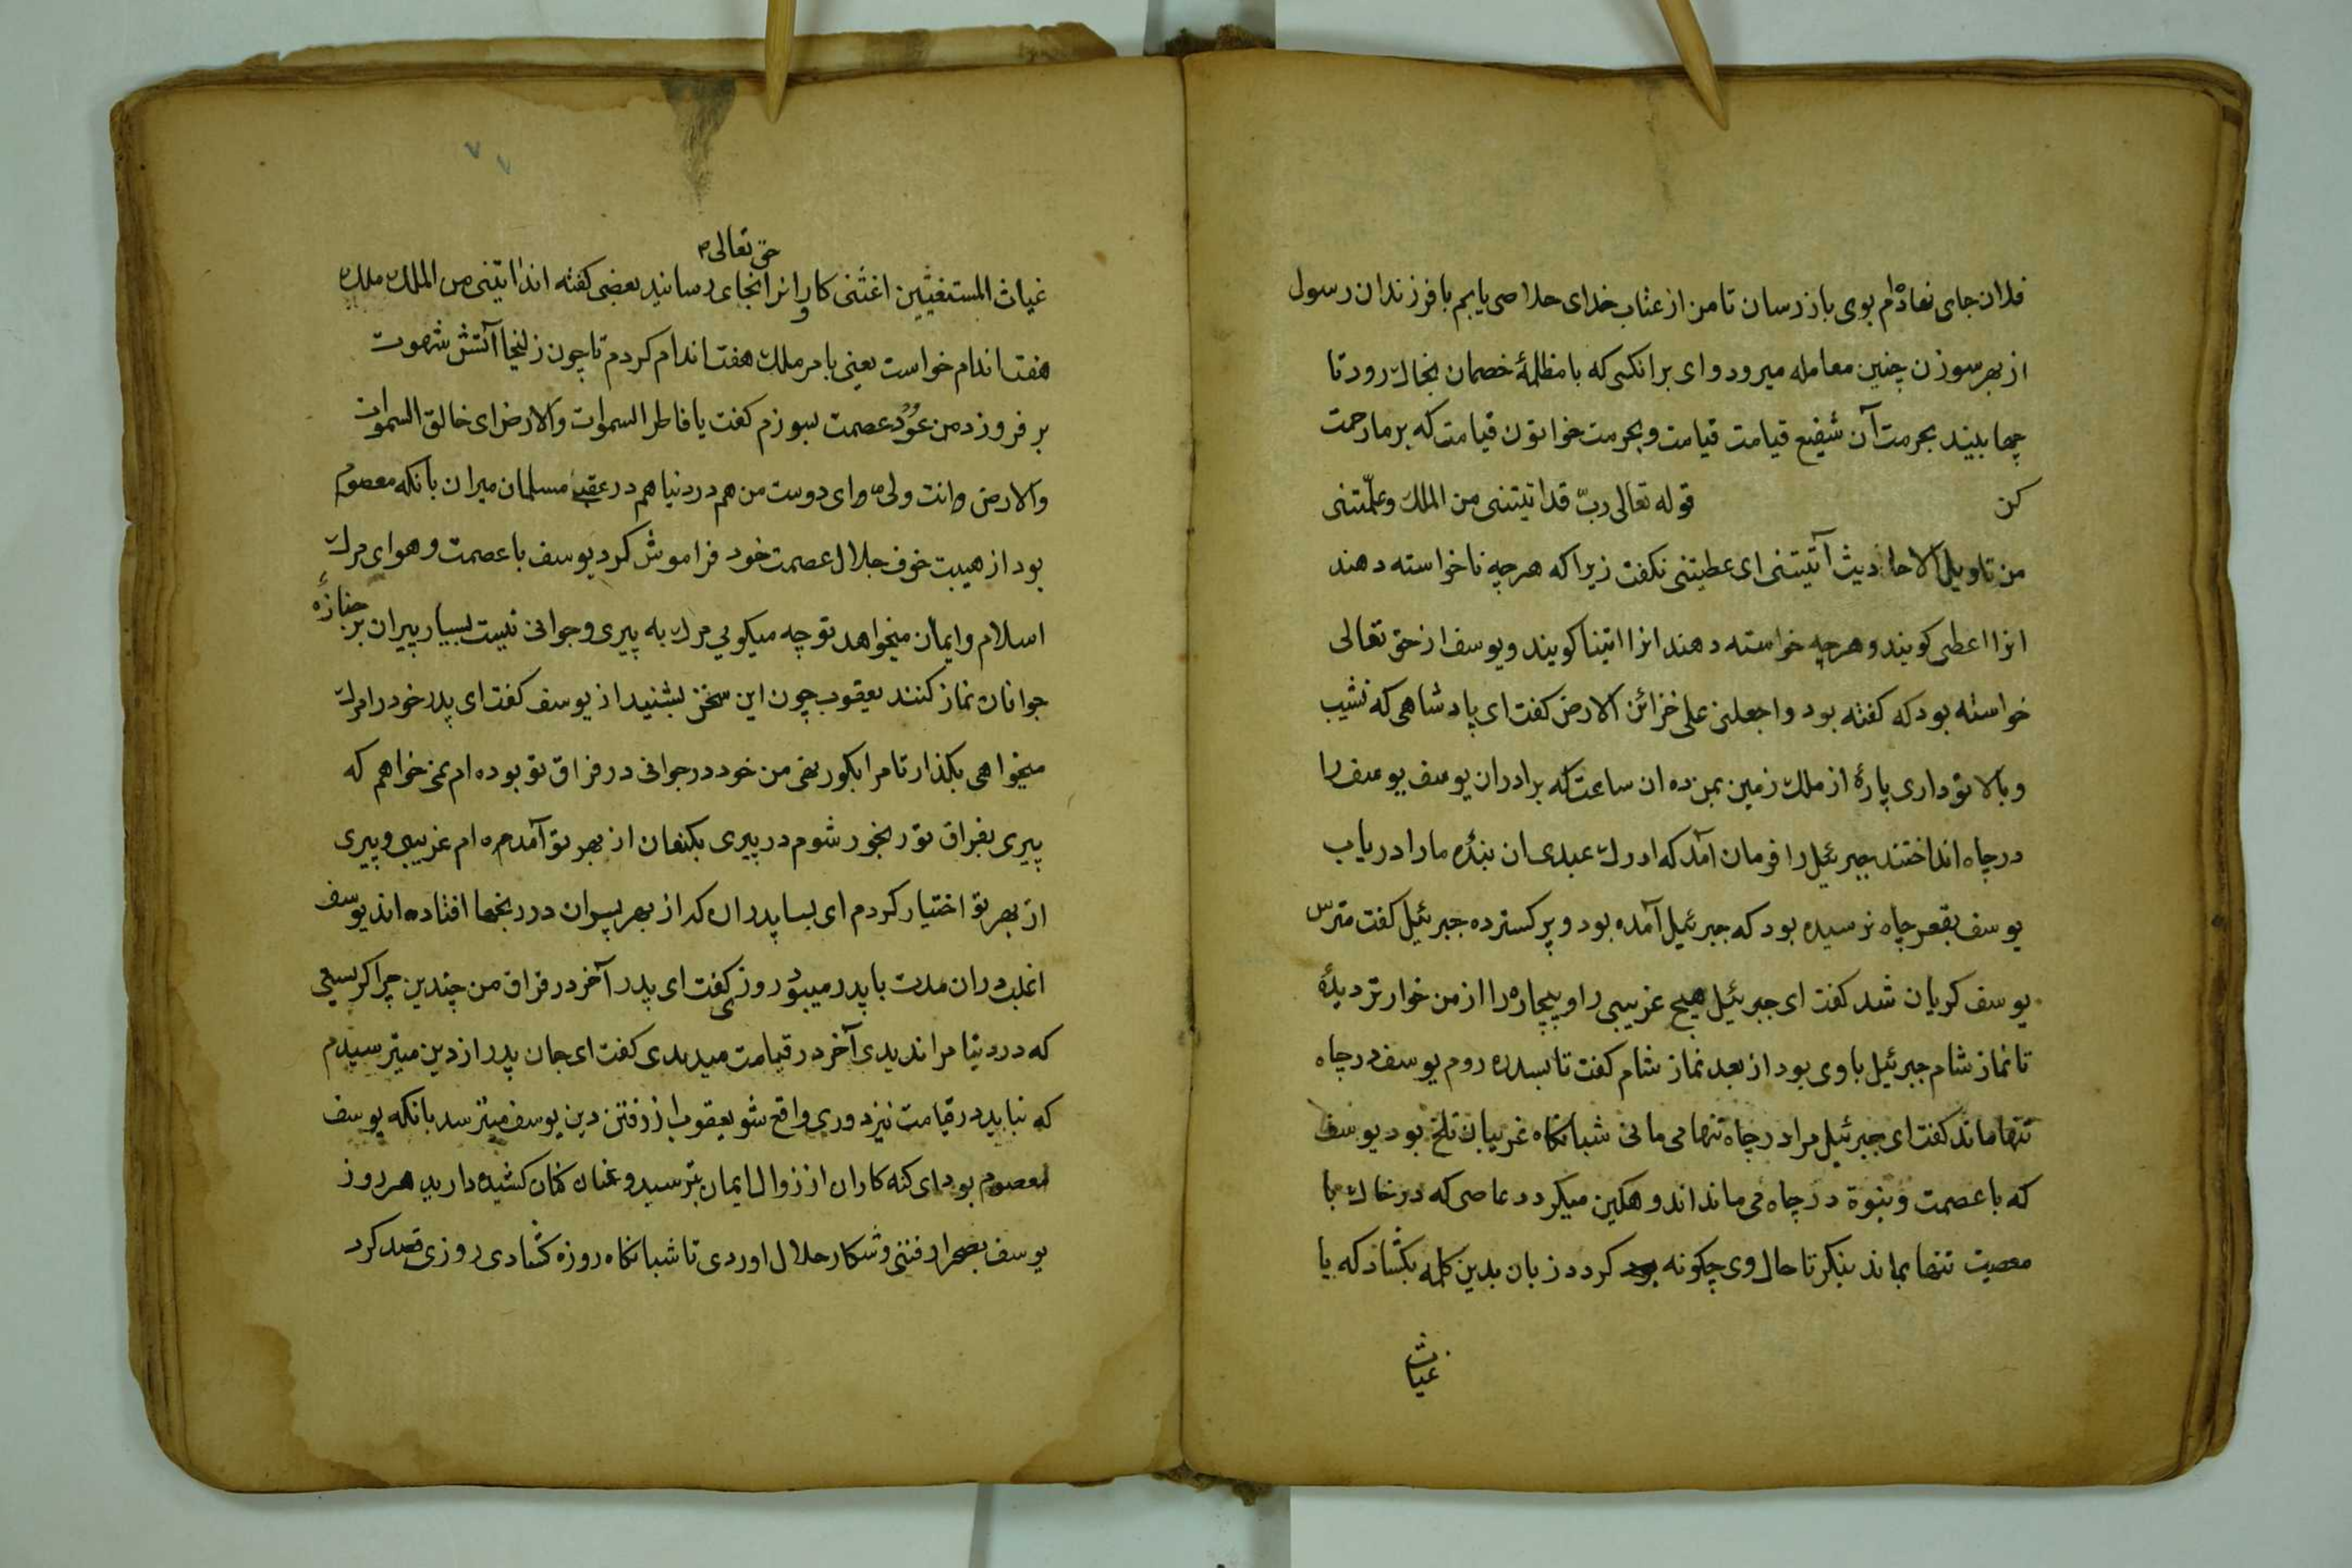 فلان جای نهاده‌ام بوی باز رسان تا من از عتاب خدای خلاصی یابم با فرزندان رسول
از بهر سوزن چنین معامله میرود وای بر انکس که با مظلمهٔ خصمان بخاک رود تا
چها بیند بحرمت آن شفیع قیامت قیامت و بحرمت خواتون قیامت که بر ما رحمت
کن قوله تعالی ربّ قد اتیتنی من الملک و علّمتنی
من تاویل الاحادیث آتیتنی ای عطیتنی نکفت زیرا که هرچه ناخواسته دهند
انرا اعطی کویند و هرچه خواسته دهند انرا اتینا کویند و یوسف از حق تعالی
خواسته بود که کفته بود واجعلنی علی خزائن الارض کفت ای پادشاهی که نشیب
و بالا تو داری پارهٔ از ملک زمین بمن ده ان ساعت که برادران یوسف یوسف را
در چاه انداختند جبرئیل را فرمان آمد که ادرک عبدی ان بندهٔ ما را دریاب
یوسف بقعر چاه نرسیده بود که جبرئیل آمده بود و پر کسترده جبرئیل کفت مترس
یوسف کریان شد کفت ای جبرئیل هیچ غریبی را و بیچاره را از من خوارتر دیدهٔ
تا نماز شام جبرئیل با وی بود از بعد نماز شام کفت تا بسدره روم یوسف در چاه
تنها ماند کفت ای جبرئیل مرا در چاه تنها می مانی شبانکاه غریبان تلخ بود یوسف
که با عصمت و نبوة در چاه می ماند اندوهکین میکردد عاصی که در خاک با
معصیت تنها بماند بنکر تا حال وی چکونه کردد زبان بدین کله بکشاد که یا
غیاث
حق تعالی
غیاث المستغیثین اغثنی کار او را نرا انجای رسانید بعضی کفته اند اتیتنی من الملک ملک
هفت اندام خواست یعنی با مر ملک هفت اندام کردم تا چون زلیخا آتش شهوت
بر فروزد من عود عصمت بسوزم کفت یا فاطر السموات والارض ای خالق السموات
والارض وانت ولی وای دوست من هم در دنیا هم در عقبی مسلمان میران بانکه معصوم
بود از هیبت خوف جلال عصمت خود فراموش کرد یوسف با عصمت و هوای مرک
اسلام و ایمان میخواهد تو چه میکویی مرک به پیری و جوانی نیست بسیار پیران بر جنازهٔ
جوانان نماز کنند یعقوب چون این سخن بشنید از یوسف کفت ای پدر خود را مرک
میخواهی بکذار تا مرا بکور نهی من خود در جوانی در فراق تو بوده ام نمی خواهم که
پیری بفراق تو رنجور شوم در پیری بکنعان از بهر تو آمده ام غریبی و پیری
از بهر تو اختیار کردم ای بسا پدران که از بهر پسران در رنجها افتاده اند یوسف
اغلب دران مدت با پدر میبود روزی کفت ای پدر آخر در فراق من چندین چرا کریستی
که در دنیا مرا ندیدی آخر در قیامت میدیدی کفت ای جان پدر از دین میترسیدم
که نباید در قیامت نیز دوری واقع شو یعقوب از رفتن دین یوسف میترسد بانکه یوسف
معصوم بود ای کنه کاران از زوال ایمان بترسید و عنان کنان کشیده دارید هر روز
یوسف بصحرا رفتنی و شکار حلال اوردی تا شبانکاه روزه کشادی روزی قصد کرد